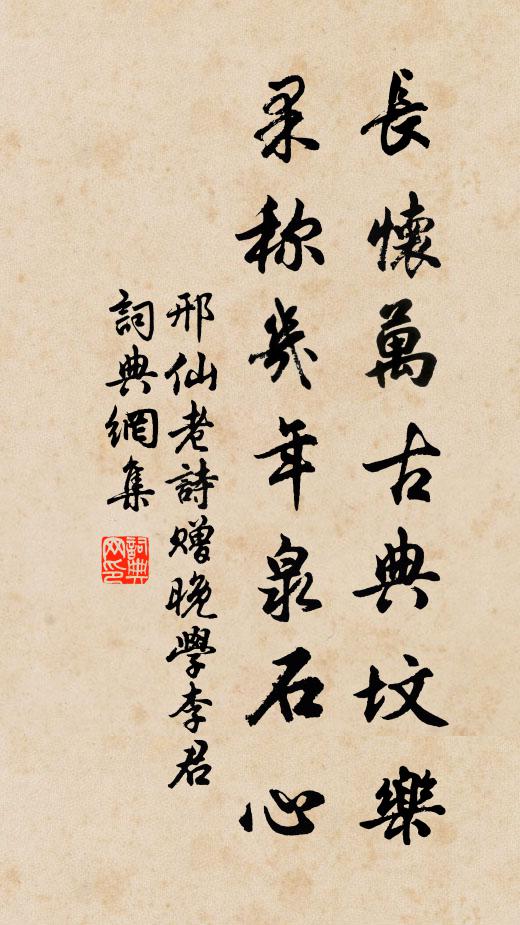 長懷萬古典坟樂
果称幾年泉石心
邢仙老詩贈晚學李君
詞典網集
詞典网印